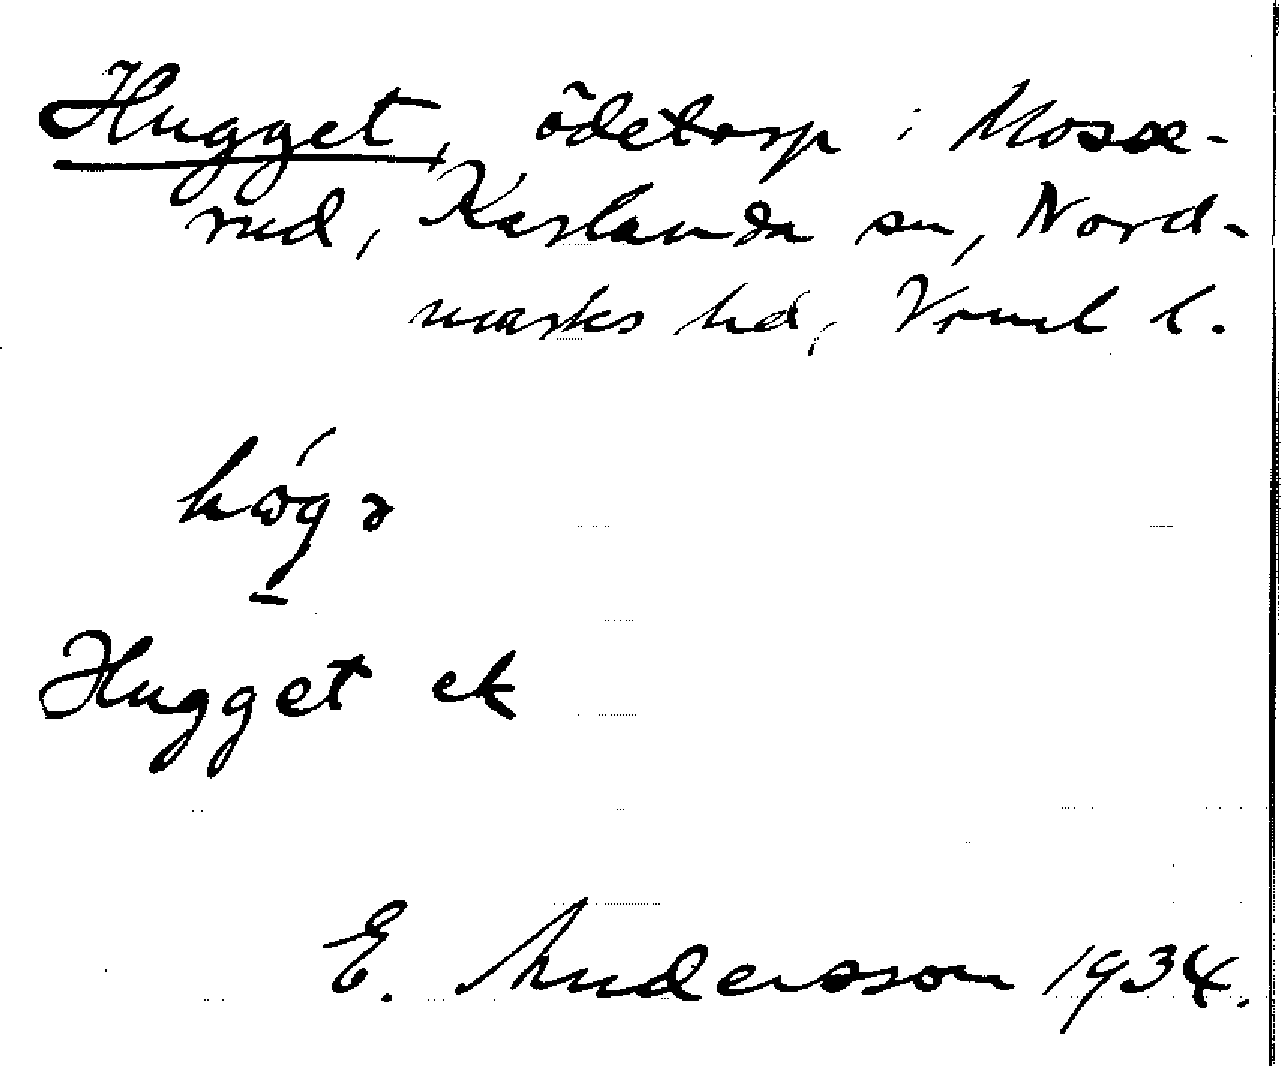 Hugget, ödetorp i Mosse-
rud, Karlanda sn, Nord-
marks hd, Vrml l.
Hugget ek
E. Andersson 1934.